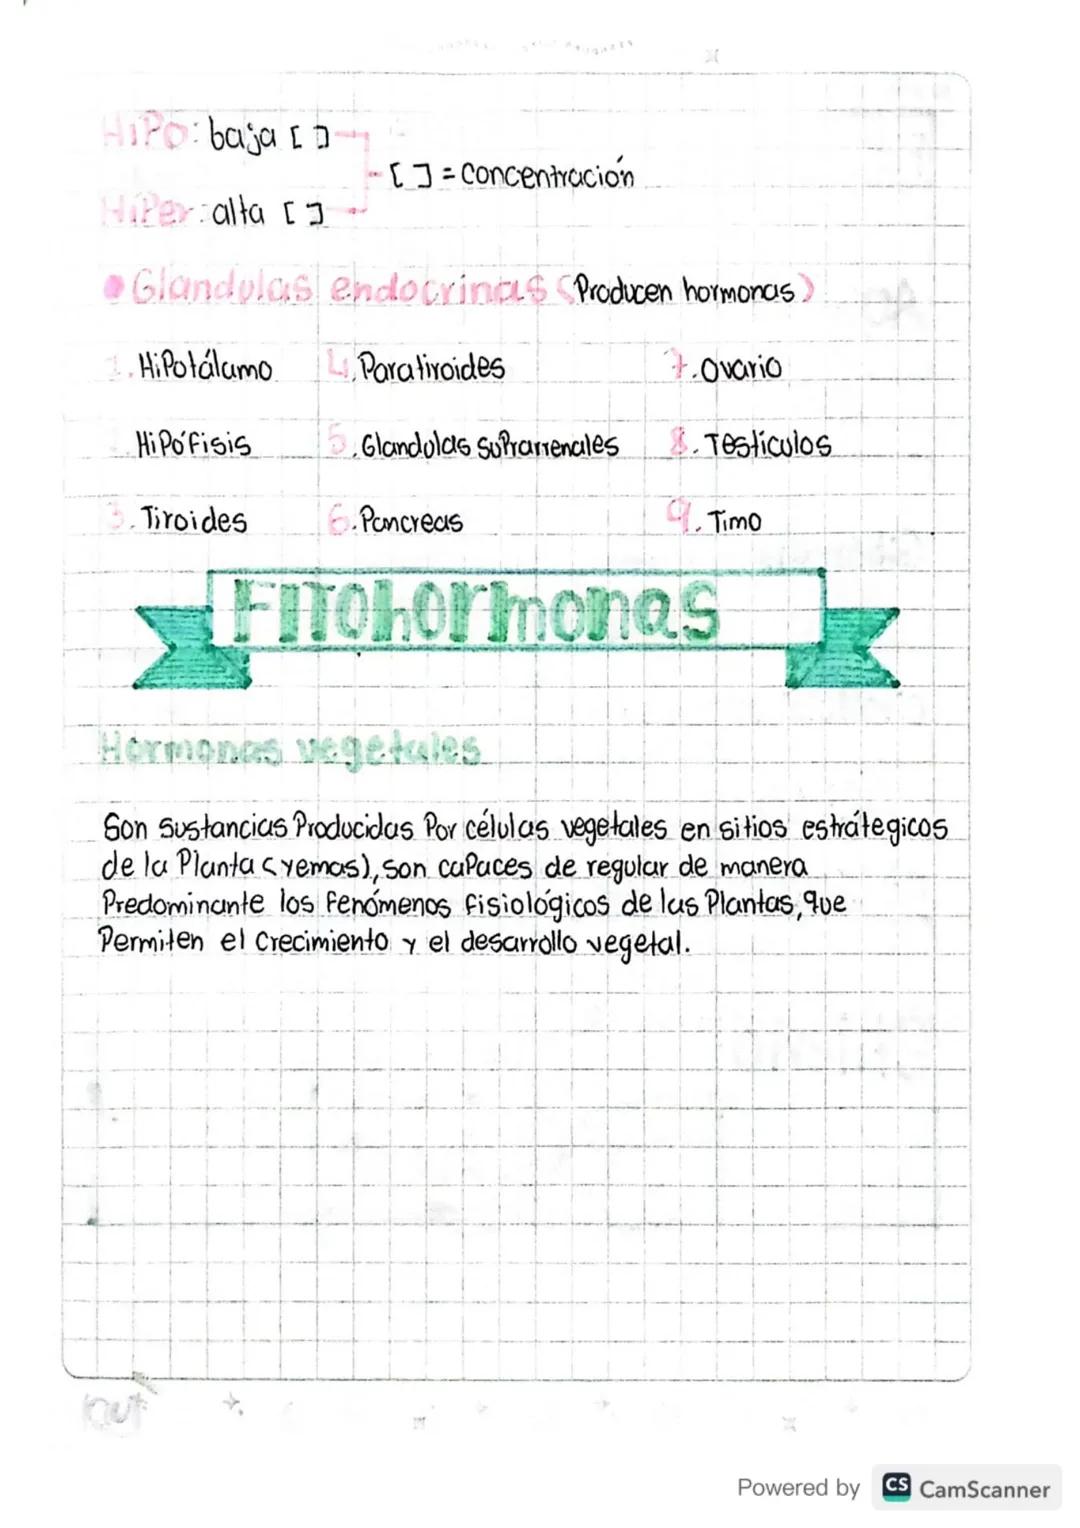 HiPo: baja [ ]
[ ] = Concentración
HiPer: alta [ ]
Glandulas endocrinas (Producen hormonas)
1. HiPotálamo 4. Paratiroides 7. Ovario
HiPófisis 5. Glandulas suPrarrenales 8. Testiculos
3. Tiroides 6. Pancreas 9. Timo
Fitohormonas
Hormonas vegetales
Son Sustancias Producidas Por células vegetales en sitios estrátegicos
de la Planta (yemas), son caPaces de regular de manera
Predominante los fenómenos fisiológicos de las Plantas, que
Permiten el Crecimiento y el desarrollo vegetal.
Powered by CS CamScanner